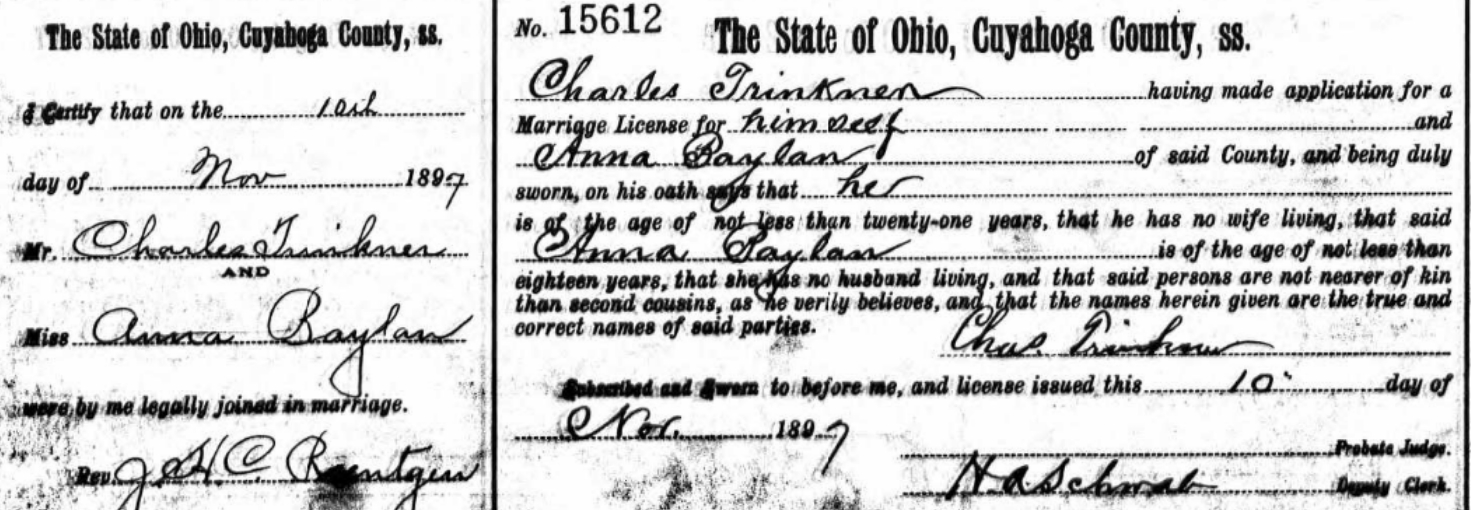 The State of Ohio, Cuyahoga County, ss.
I Certify that on the 10th
day of Nov 1897
Mr. Charles Trinkner
AND
Miss Anna Baylan
were by me legally joined in marriage.
Rev. J. H. C. Roentgen
No. 15612
The State of Ohio, Cuyahoga County, ss.
Charles Trinkner having made application for a
Marriage License for himself and
Anna Baylan of said County, and being duly
sworn, on his oath says that he
is of the age of not less than twenty-one years, that he has no wife living, that said
Anna Baylan is of the age of not less than
eighteen years, that she has no husband living, and that said persons are not nearer of kin
than second cousins, as he verily believes, and that the names herein given are the true and
correct names of said parties.
Chas. Trinkner
Subscribed and Sworn to before me, and license issued this 10" day of
Nov. 1897
Probate Judge.
H A Schwab Deputy Clerk.